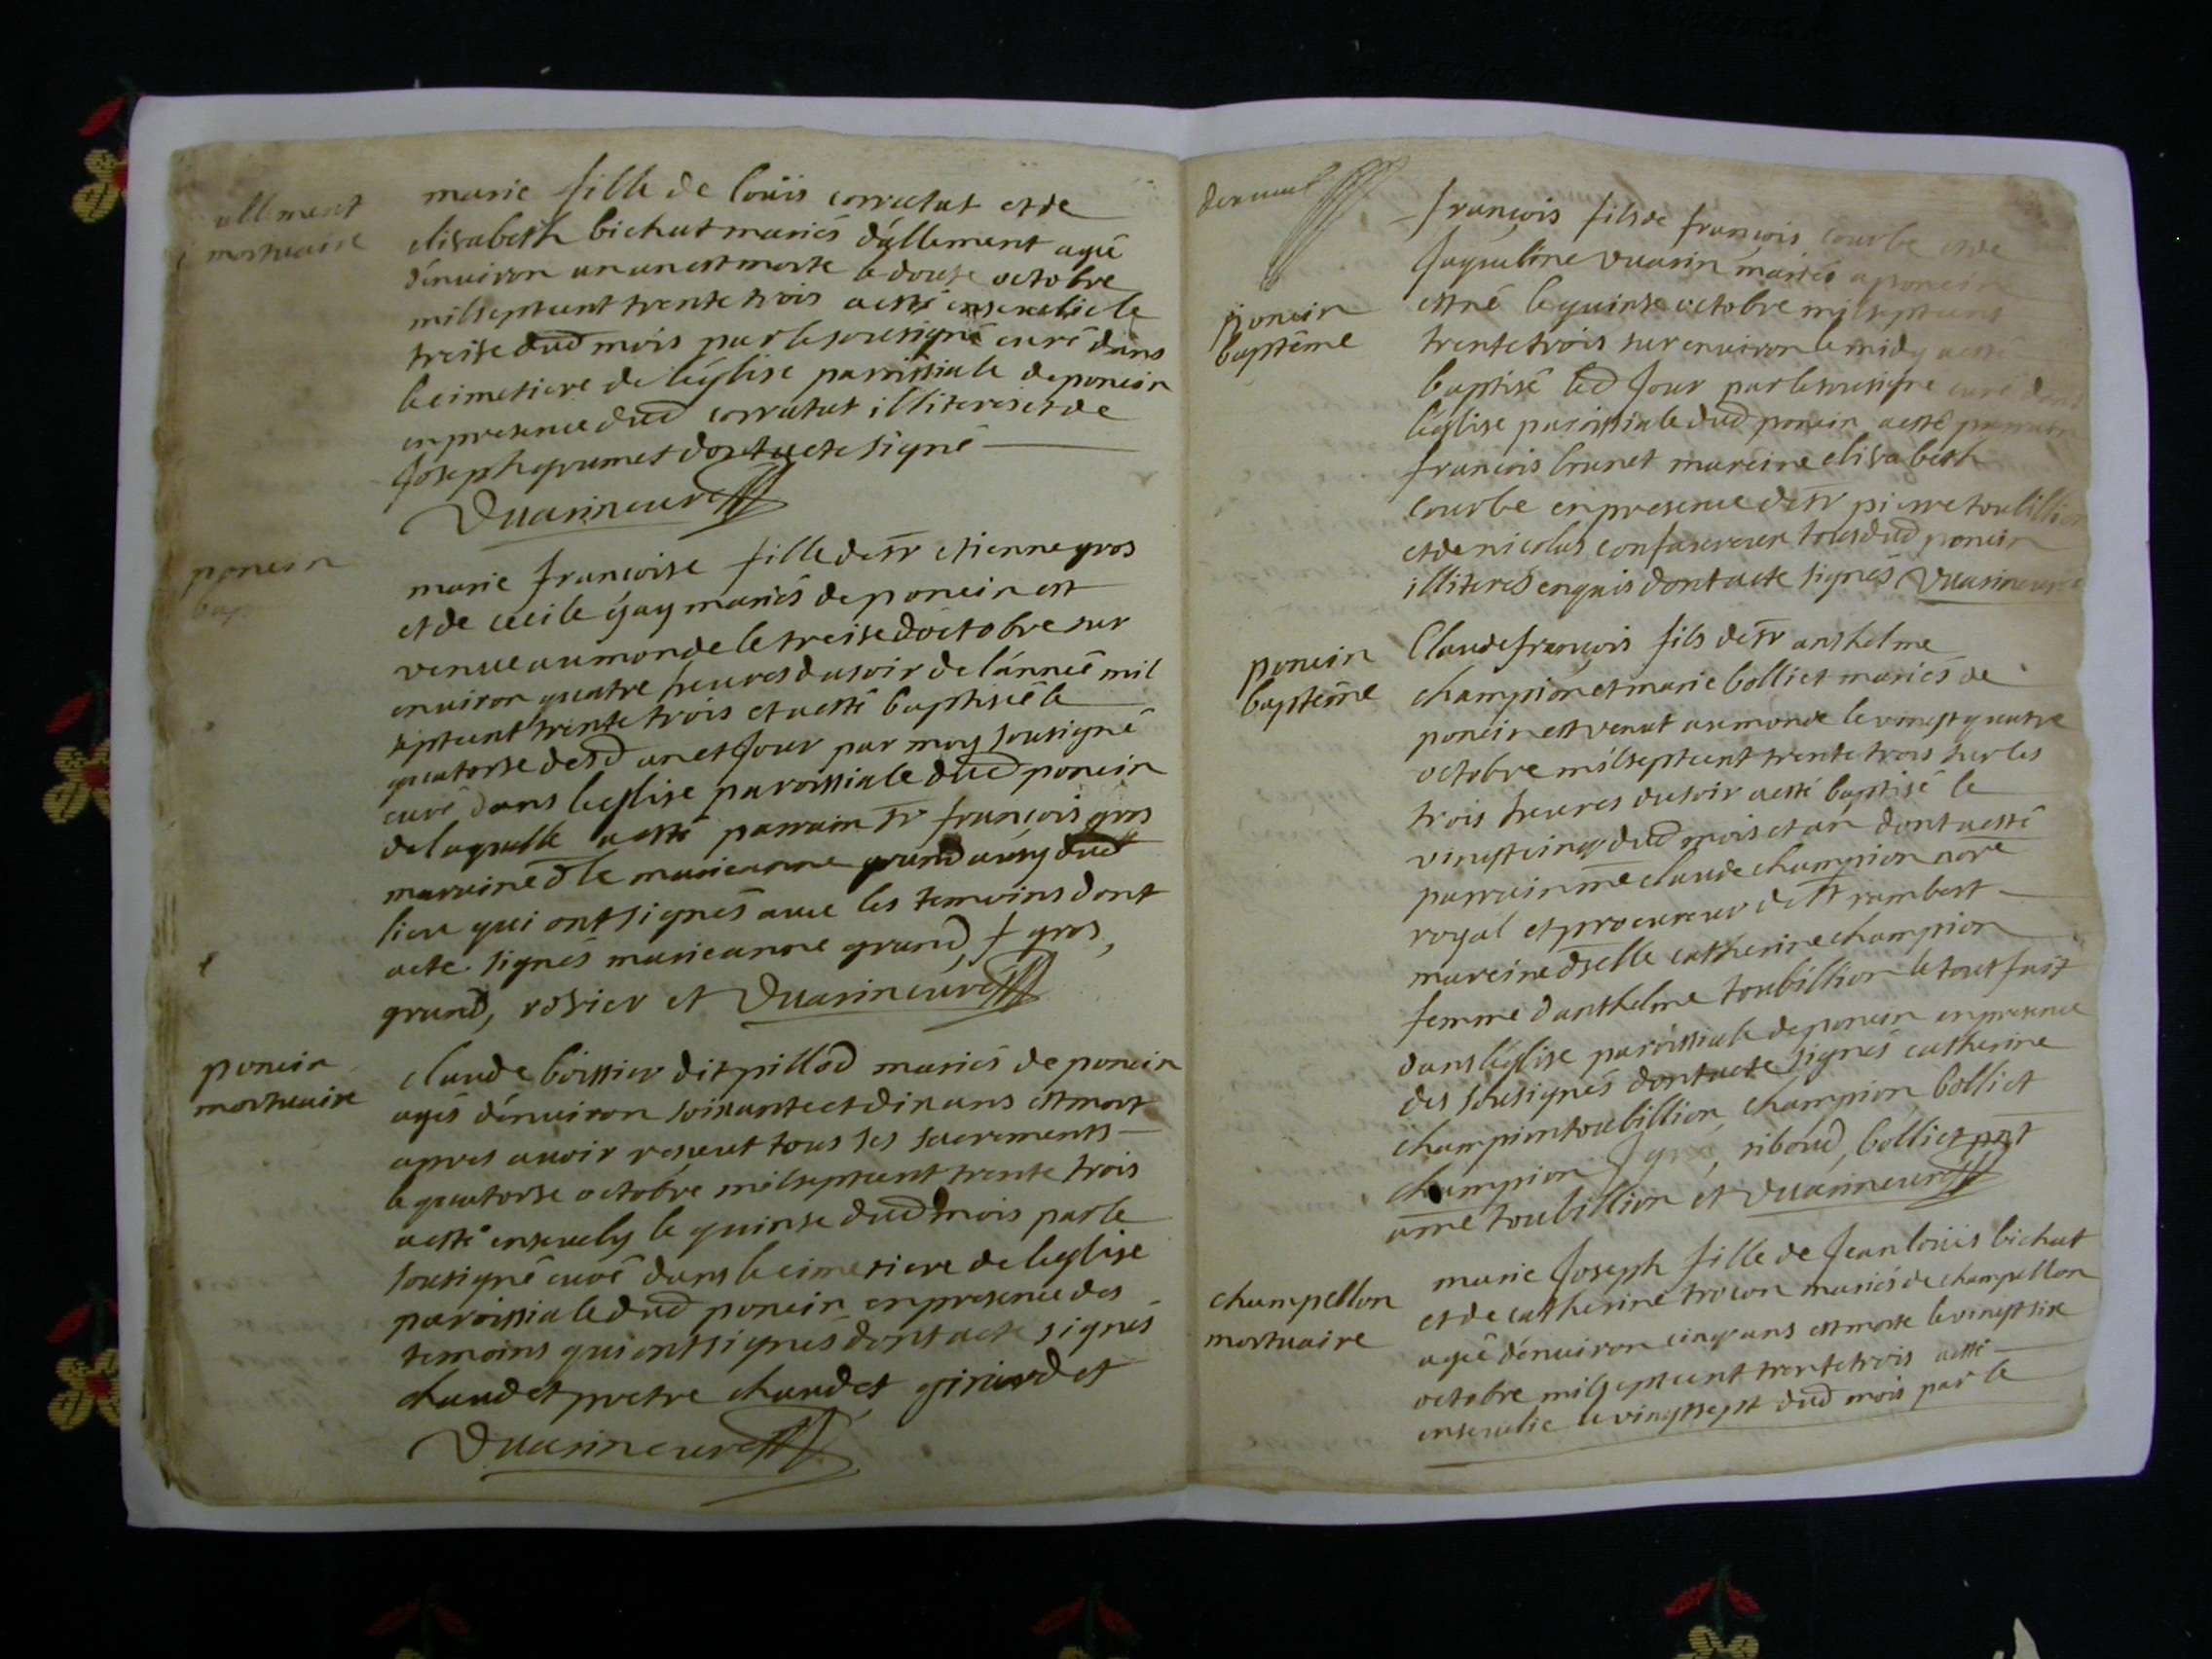 allement
mortuaire
marie fille de loüis corratat et de
elisabeth bichat mariés d'allement agé
d'enuiron un an est morte le douse octobre
mil sept cent trente trois a esté enseuelie le
treise dud mois par le sousigné curé dans
le cimetiere de l'église parrissiale de poncin
en presence dud corratat illiteres et de
Joseph grumet dont acte signé
Duarin curé
poncin
bap.
marie francoise fille de sr etienne gros
et de cecile gay mariés de poncin est
venue au monde le treise d'octobre sur
enuiron quatre heures du soir de l'année mil
sept cent trente trois et a esté baptisée le
quatorse desd an et Jour par moy sousigné
curé dans l'eglise paroissiale dud poncin
de laquelle a esté parrain sr françois gros
maraine dlle marieanne grand aussy dud
lieu qui ont signés auec les temoins dont
acte signés marieanne grand, f gros,
grand, rosier et Duarin curé
poncin
mortuaire
claude boissier dit pillod mariés de poncin
agés d'enuiron soixante et dix ans est mort
apres auoir reseut tous ses sacrements
le quatorse octobre mil sept cent trente trois
a esté enseuely le quinse dud mois par le
sousigné curé dans le cimetiere de l'eglise
paroissiale dud poncin en presence des
temoins qui ont signés dont acte signés
chaudet pretre chaudet girard et
Duarin curé
poncin
baptême
françois fils de françois courbe et de
Jaqueline Duarin mariés a poncin
est né le quinse octobre mil sept cent
trente trois sur enuiron le midy a esté
baptisé led Jour par le sousigné curé dans
l'église paroissiale dud poncin a esté parrain
francois brunet mareine elisabeth
courbe en presence de sr pierre toubillion
et de nicolas confauereux tous dud poncin
illiteres enquis dont acte signés Duarin curé
poncin
baptême
Claude françois fils de sr anthelme
champion et marie bolliet mariés de
poncin est venut au monde le vingt quatre
octobre mil sept cent trente trois sur les
trois heures du soir a esté baptisé le
vingt cinq dud mois et an dont a esté
parrain me claude champion nore
royal et procureur de st rambert
mareine dselle catherine champion
femme d'anthelme toubillion le tout fait
dans l'église paroissiale de poncin en presence
des sousignés dont acte signés catherine
champion toubillion, champion, bolliet
champion, riboud, bolliet
ame toubillion et Duarin curé
champellon
mortuaire
marie Joseph fille de Jean loüis bichat
et de catherine trocon mariés de champellon
agée d'enuiron cinq ans est morte le vingt six
octobre mil sept cent trente trois a esté
enseuelie le vingt sept dud mois par le